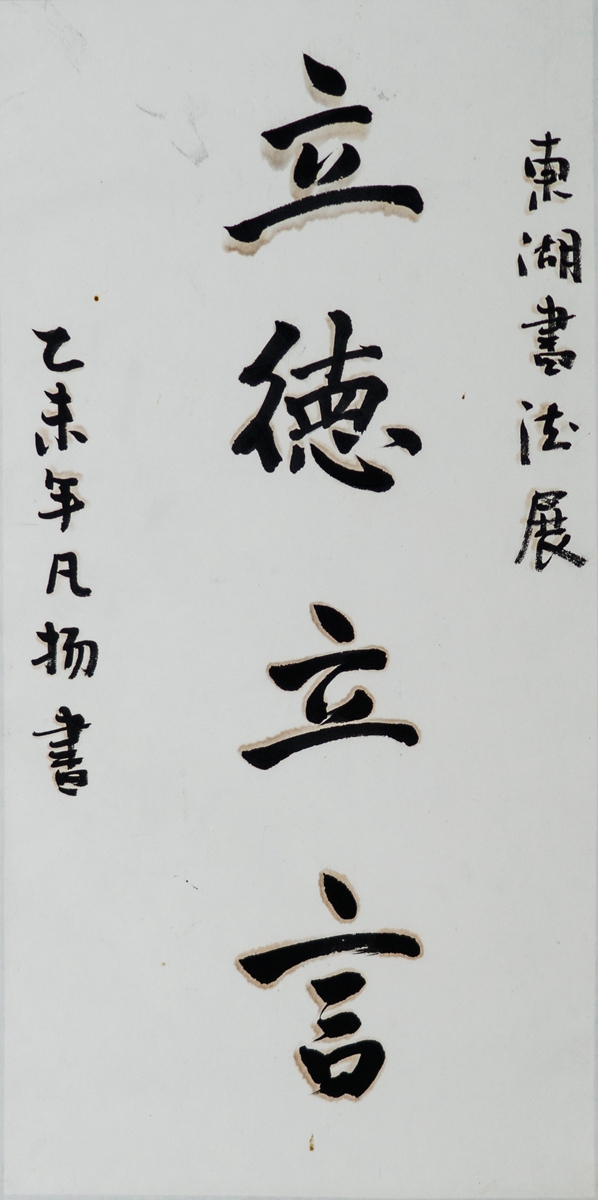 東湖書法展
立德立言
乙未年凡扬書